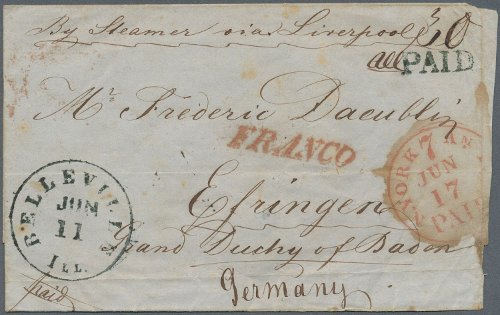 By Steamer via Liverpool
30
all
PAID
Mr. Frederic Daeublin
FRANCO
Efringen
Grand Duchy of Baden
Germany
paid
BELLEVILLE
JUN
11
ILL.
YORK AM
7
JUN
17
PAID